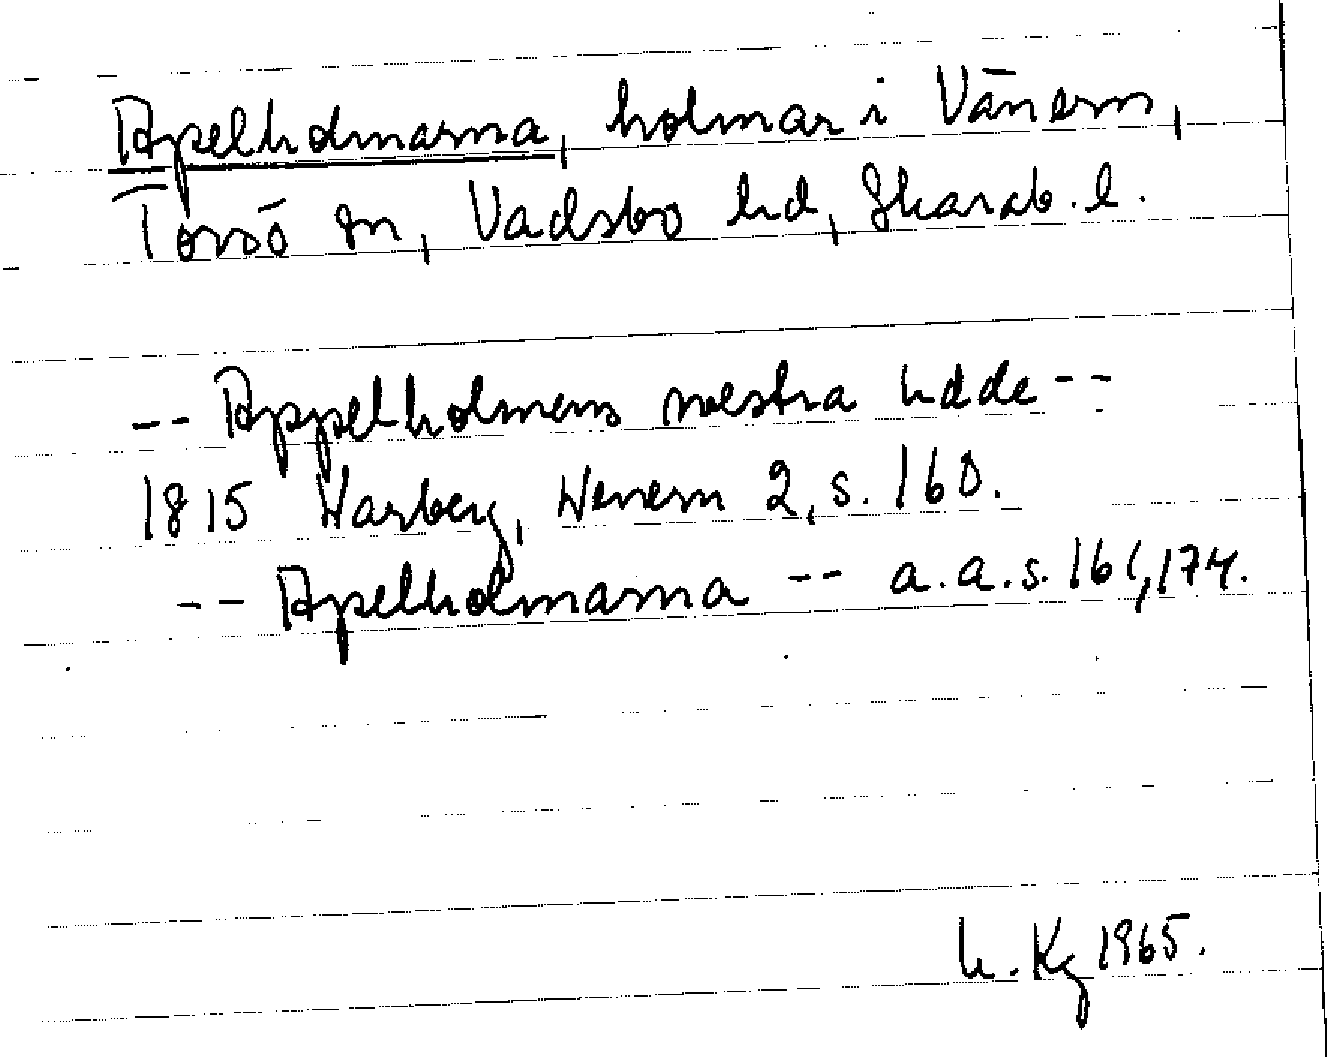 Apelholmarna, holmar i Vänern,
Torsö sn, Vadsbo hd, Skarab. l.
-- Appelholmens westra udde --
1815 Warberg, Wenern 2, s. 160.
-- Apelholmarna -- a.a.s. 161, 174.
h. Kg 1965.